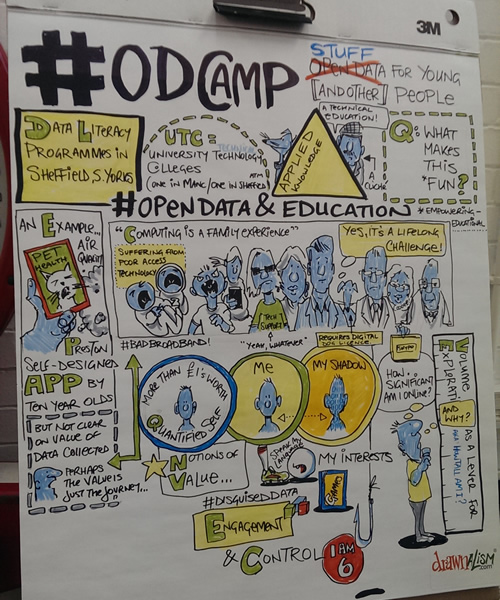 3M
#ODCAMP
STUFF
OPEN DATA FOR YOUNG
[AND OTHER] PEOPLE
DATA LITERACY
PROGRAMMES IN
SHEFFIELD, S. YORKS
UTC =
UNIVERSITY TECHNOLOGY
COLLEGES
ATM
(ONE IN MANC/ONE IN SHEFF)
APPLIED
KNOWLEDGE
A TECHNICAL
EDUCATION!
A
CLICHÉ
Q: WHAT
MAKES
THIS
*FUN?
#OPENDATA & EDUCATION
*EMPOWERING-
EDUCATIONAL
AN EXAMPLE...
AIR
QUALITY
PET
HEALTH
PRESTON
SELF-DESIGNED
APP BY
TEN YEAR OLDS
BUT NOT CLEAR
ON VALUE OF
DATA COLLECTED
PERHAPS
THE VALUE IS
JUST THE JOURNEY...
"COMPUTING IS A FAMILY EXPERIENCE"
SUFFERING FROM
POOR ACCESS
TECHNOLOGY
YES, IT'S A LIFELONG
CHALLENGE!
TECH
SUPPORT
#BADBROADBAND!
"YEAH, WHATEVER"
REQUIRES DIGITAL
MORE THAN £1'S WORTH
QUANTIFIED SELF
ME
MY SHADOW
NOTIONS OF
VALUE...
SPEAK MY
LANGUAGE
MY INTERESTS
#DISGUISEDDATA
ENGAGEMENT
& CONTROL
I AM
6
HOW
SIGNIFICANT
AM I ONLINE?
VOLUME
EXPLORATION
AND WHY?
AS A LEVER FOR
AKA HOW TALL AM I?
drawnalism
.com